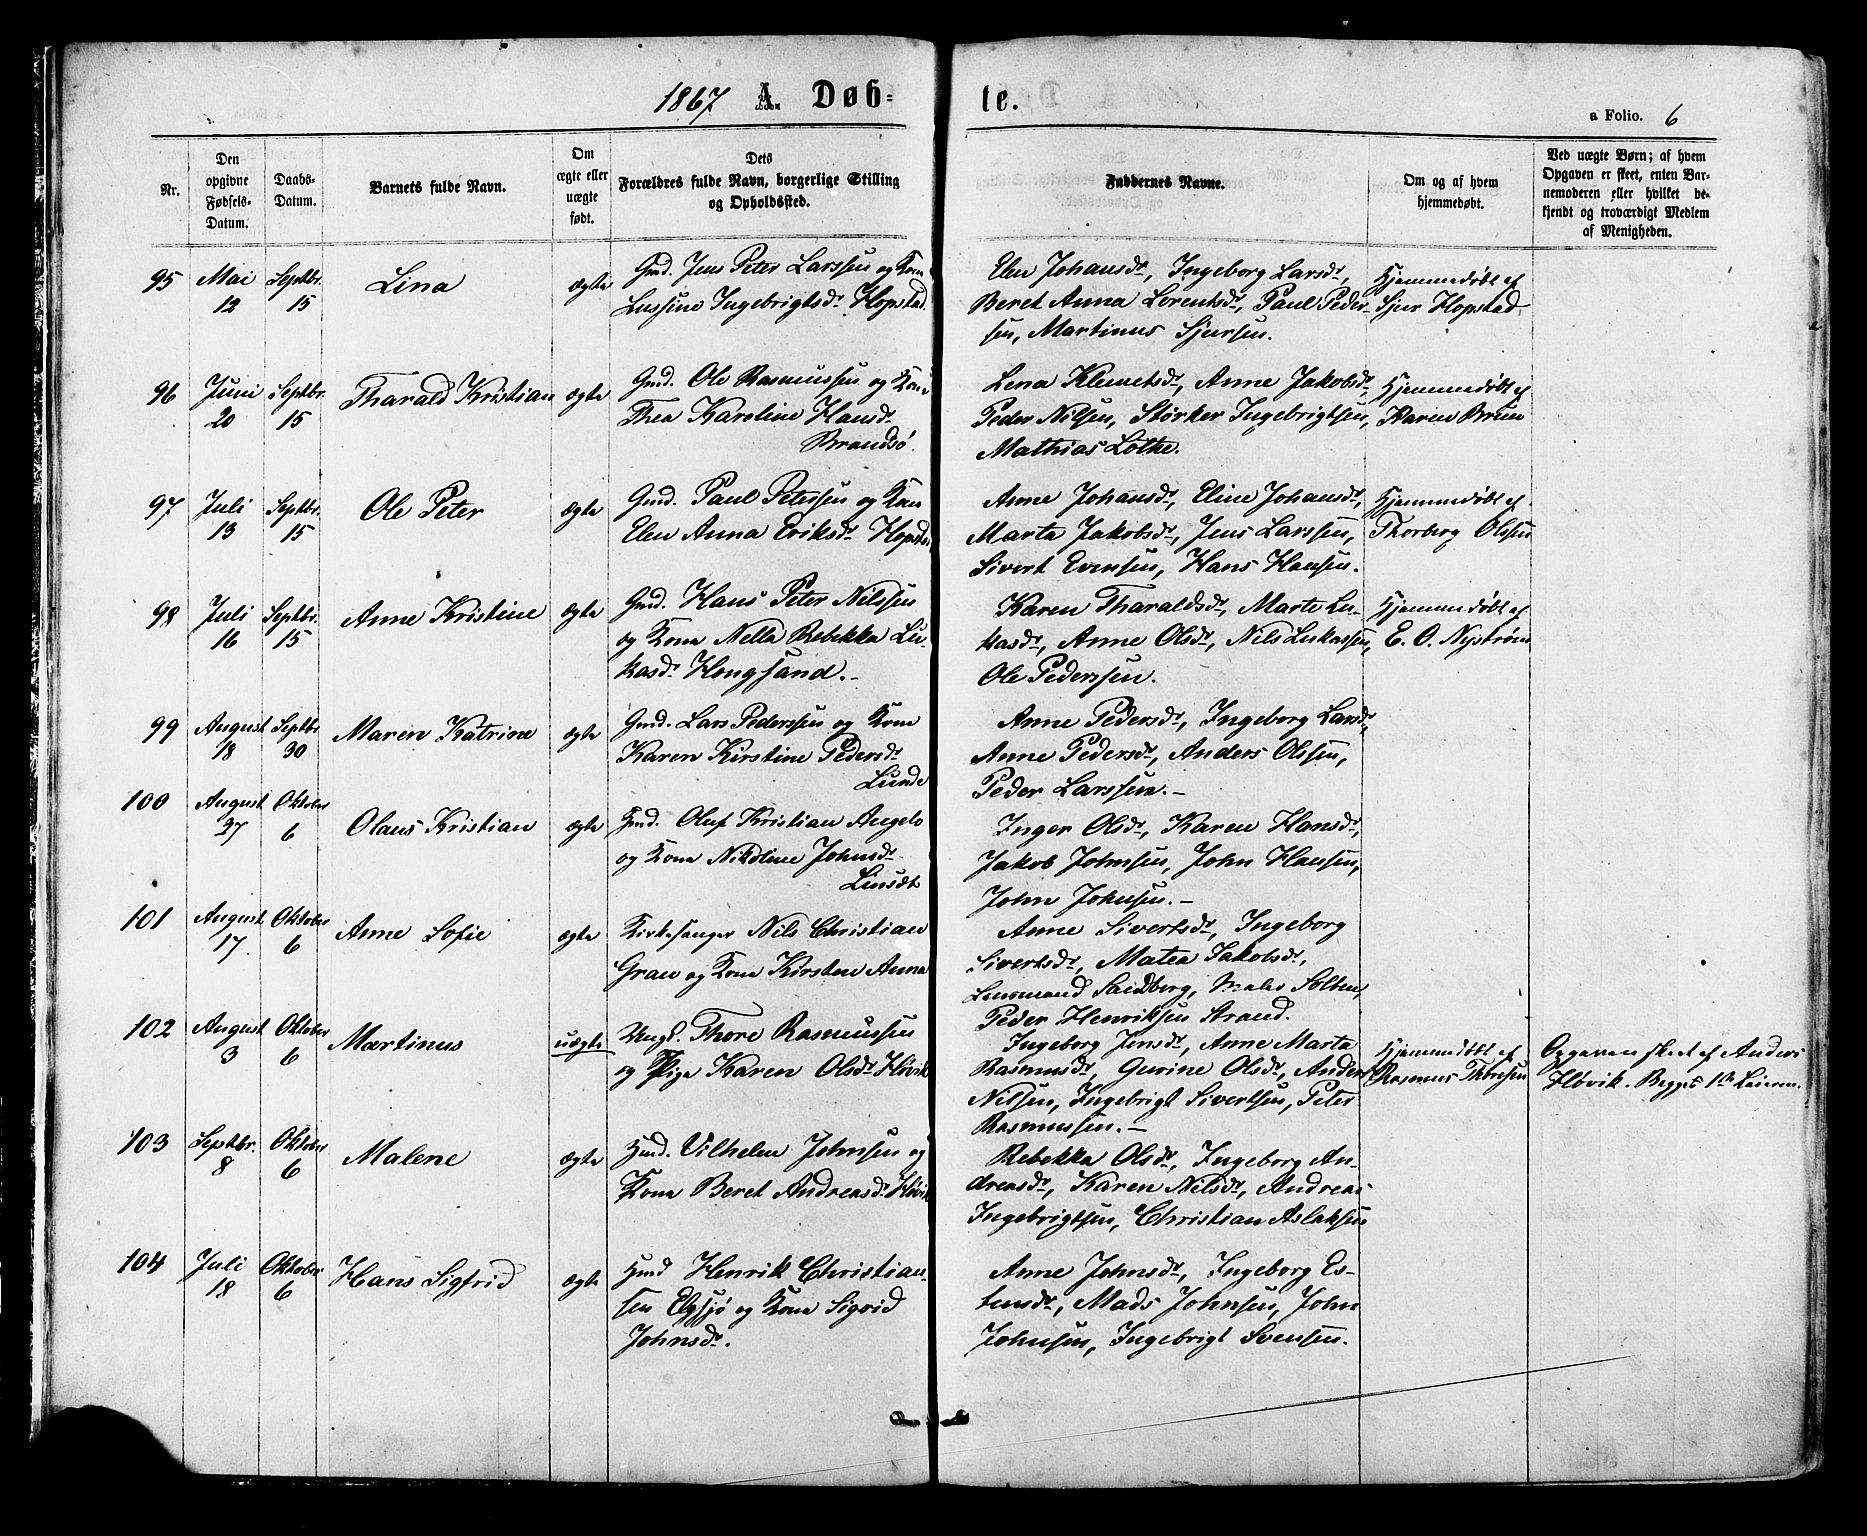 1867 A. Døb-
te.
a Folio. 6
Nr.
Den
opgivne
Fødsels-
Datum.
Daabs-
Datum.
Barnets fulde Navn.
Om
ægte eller
uægte
født.
Dets
Forældres fulde Navn, borgerlige Stilling
og Opholdssted.
Faddernes Navne.
Om og af hvem
hjemmedøbt.
Ved uægte Børn; af hvem
Opgaven er skeet, enten Bar-
nemoderen eller hvilket be-
kjendt og troværdigt Medlem
af Menigheden.
95 Mai 12 Septbr. 15 Lina ægte
Gmd. Jens Peter Larssen og Kone
Lussine Ingebrigtsdr. Hopstad.
Elen Johansdr., Ingeborg Larsdr.,
Beret Anna Lorentsdr., Paul Peder-
sen, Martinus Sjursen.
Hjemmedøbt af
Sjur Hopstad
96 Juni 20 Septbr. 15 Tharald Kristian ægte
Gmd. Ole Rasmussen og Kone
Thea Karoline Hansdr.
Brandsø.
Lena Klemetsdr., Anne Jakobsdr.,
Peder Nilsen, Størker Ingebrigtsen,
Mathias Lothe.
Hjemmedøbt af
Karen Bruun
97 Juli 13 Septbr. 15 Ole Peter ægte
Gmd. Paul Petersen og Kone
Elen Anna Eriksdr. Hopstad
Anne Johansdr., Eline Johansdr.,
Marta Jakobsdr., Jens Larssen,
Sivert Evensen, Hans Hansen.
Hjemmedøbt af
Thorberg Olssen
98 Juli 16 Septbr. 15 Anne Kristine ægte
Gmd. Hans Peter Nilssen
og Kone Nella Rebekka Lu-
kasdr. Hongsand.-
Karen Tharaldsdr., Marte Lu-
kasdr., Anne Olsdr., Nils Lukassen,
Ole Pederssen.
Hjemmedøbt af
E. O. Nystrøm
99 August 18 Septbr 30 Maren Katrine ægte
Gmd. Lars Pederssen og Kone
Karen Kirstine Pedersdr.
Lunde
Anne Pedersdr., Ingeborg Larsdr.,
Anne Pedersdr., Anders Olssen,
Peder Larssen.-
100 August 27 Oktober 6 Olaus Kristian ægte
Gmd. Oluf Kristian Angelo
og Kone Nikoline Johnsdr.
Linsæt
Inger Olsdr., Karen Hansdr.,
Jakob Johnsen, John Hansen,
John Johnsen.-
101 August 17 Oktober 6 Anne Sofie ægte
Kirkesanger Nils Christian
Gran og Kone Kirsten Anna
Anne Sivertsdr., Ingeborg
Sivertsdr., Matea Jakobsdr.,
Lensmand Sandberg, Maler Solten,
Peder Henriksen Strand.
102 August 3 Oktober 6 Martinus uægte
Ungk. Thore Rasmussen
og Pige Karen Olsdr. Høvik
Ingeborg Jensdr., Anne Marta
Rasmusdr., Gurine Olsdr., Anders
Nilsen, Ingebrigt Sivertsen, Peter
Rasmussen.-
Hjemmedøbt af
Rasmus Thoresen
Opgaven skeet af Anders
Høvik. Begges 1ste Leierm.
103 Septbr. 8 Oktober 6 Malene ægte
Hmd. Vilhelm Johnsen og
Kone Beret Andreasdr. Høvik
Rebekka Olsdr., Ingeborg An-
dreasdr., Karen Nilsdr., Andreas
Ingebrigtsen, Christian Aslaksen
104 Juli 18 Oktober 6 Hans Sigfrid ægte
Hmd Henrik Christian-
sen Elgsjø og Kone Sigrid
Johnsdr.
Anne Johnsdr., Ingeborg Es-
tensdr., Mads Johnsen, John
Johnsen, Ingebrigt Svensen.